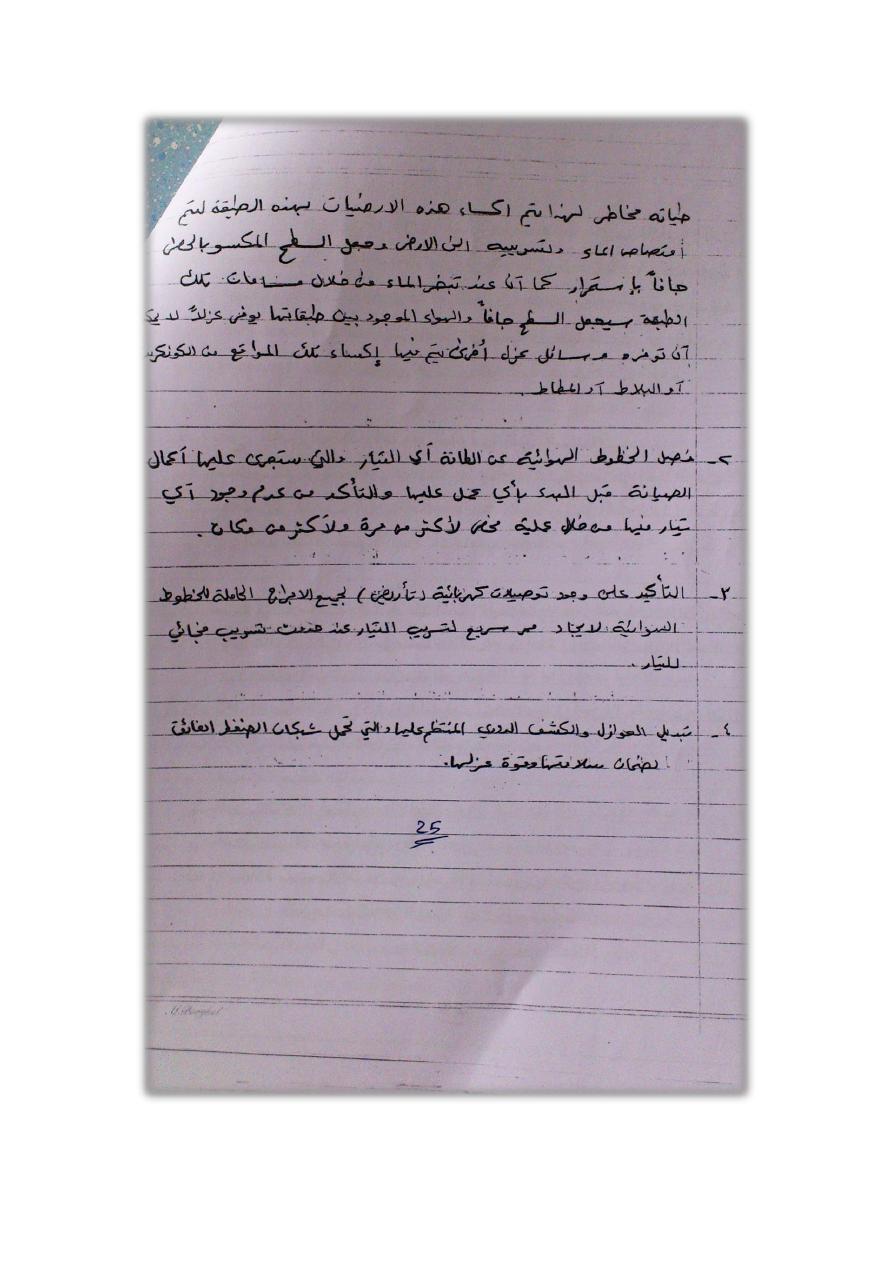 طياته مخاطر لهذا يتم اكساء هذه الارضيات بهذه الطبقة ليتم
أمتصاص الماء وتسريبه الى الارض وجعل السطح المكسو بالحصى
جافاً بإستمرار كما أن عند تبخر الماء من خلال مسامات تلك
الطبقة سيجعل السطح جافاً والهواء الموجود بين طبقاتها يوفر عزلاً لا يمكن
أن توفره وسائل عزل أُخرى يتم فيها إكساء تلك المواقع من الكونكريت
أو البلاط أو المطاط.
٢- فصل الخطوط الهوائية عن الطاقة أي التيار والتي ستجرى عليها أعمال
الصيانة قبل البدء بأي عمل عليها والتأكد من عدم وجود أي
تيار فيها من خلال عملية فحص لأكثر من مرة ولأكثر من مكان.
٣- التأكيد على وجود توصيلات كهربائية (تأريض) لجميع الابراج الحاملة للخطوط
الهوائية لايجاد ممر سريع لتسريب التيار عند حدوث تسريب فجائي
للتيار.
٤- تبديل العوازل والكشف الدوري المنتظم عليها والتي تحمل شبكات الضغط الفائق
لضمان سلامتها وقوة عزلها.
25